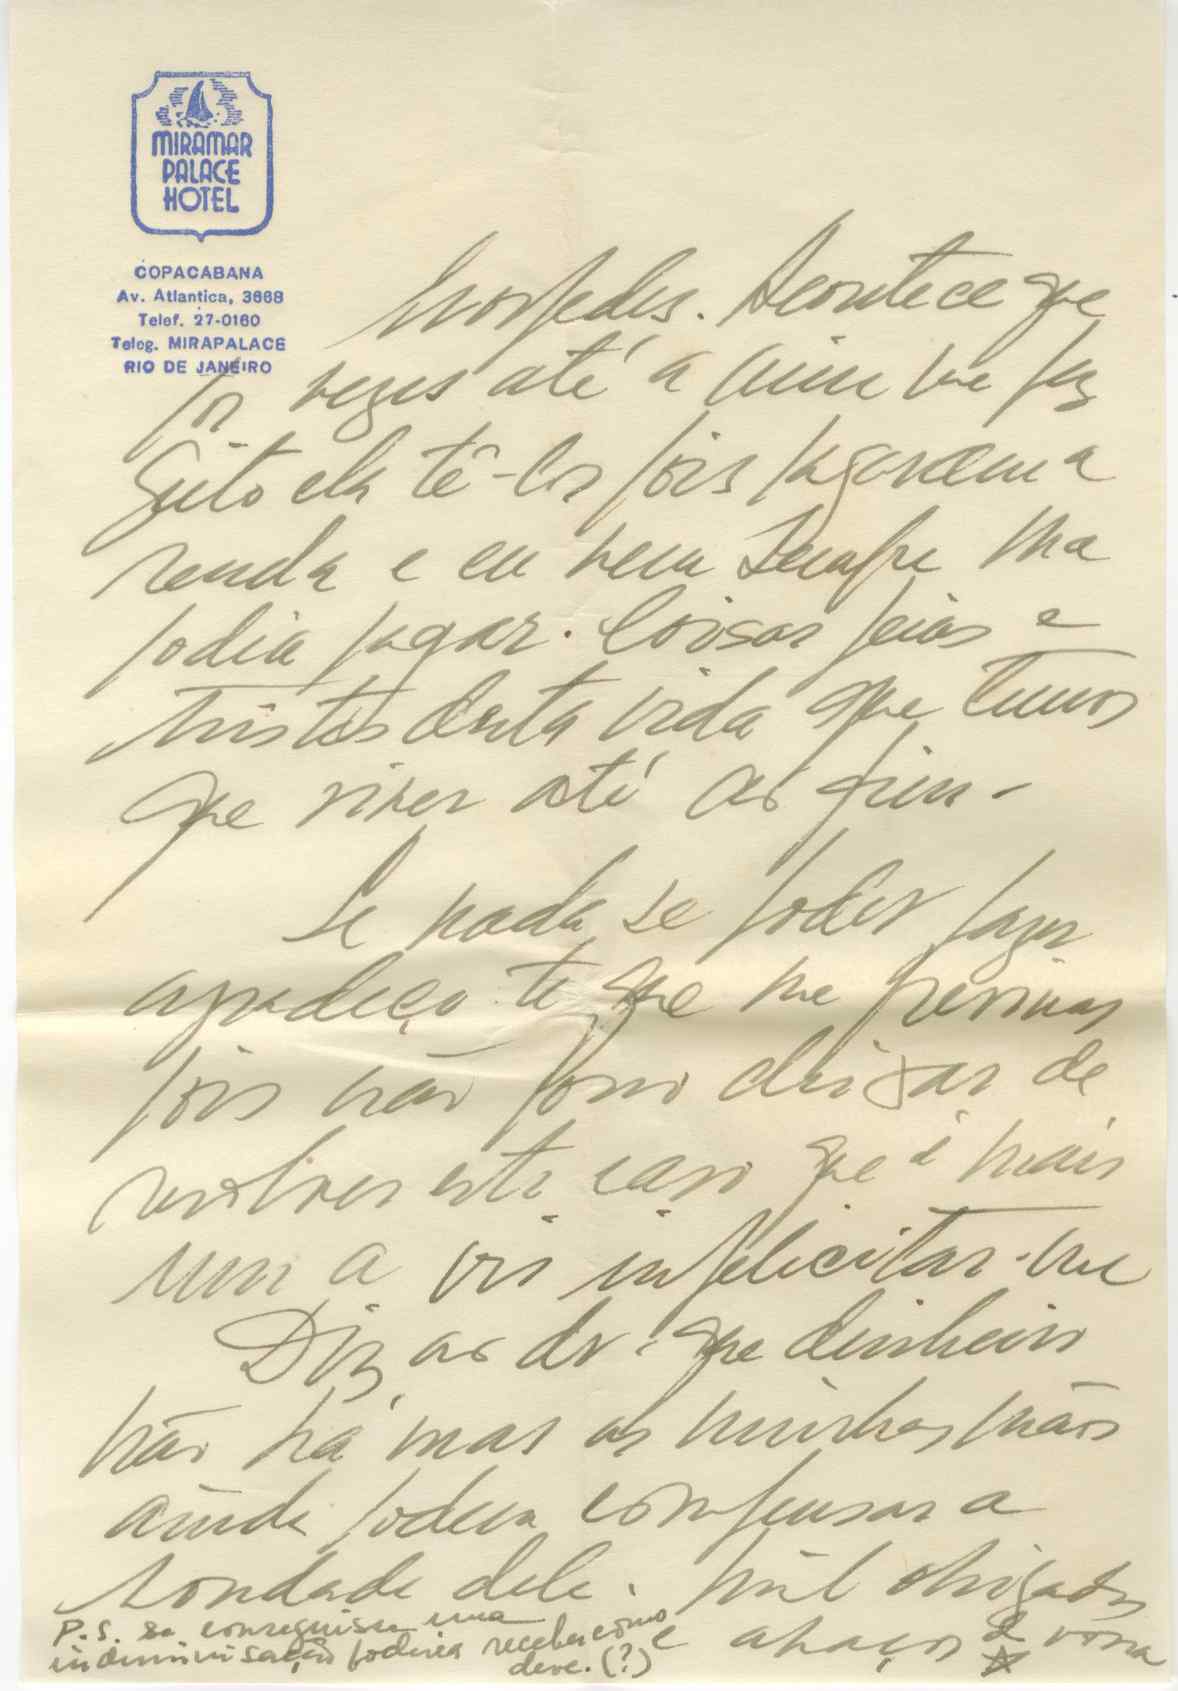 MIRAMAR
PALACE
HOTEL
COPACABANA
Av. Atlantica, 3668
Telef. 27-0160
Teleg. MIRAPALACE
RIO DE JANEIRO
hospedes. Acontece que
por vezes até a mim me faz
geito ela tê-los pois pagavam a
renda e eu nem sempre lha
podia pagar. Coisas feias e
tristes desta vida que temos
que viver até ao fim -
Se nada se poder fazer
agradeço-te que me previnas
pois não posso deixar de
resolver este caso que é mais
um a vir infelicitar-me
Diz ao dr. que dinheiro
não há mas as minhas mãos
ainda podem compensar a
bondade dele. Mil obrigados
e abraços da vossa
P.S. se conseguisse uma
indiminisação poderia receber como
deve. (?)